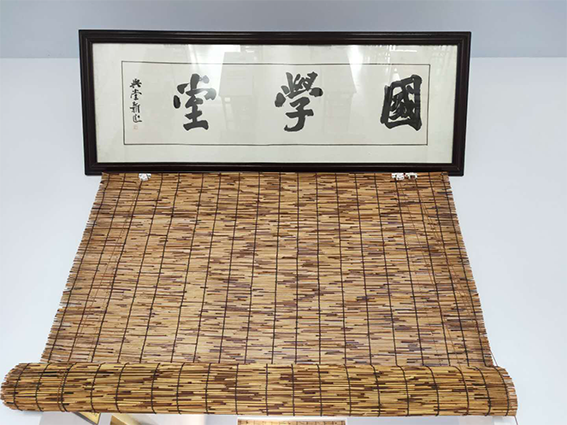 國學堂